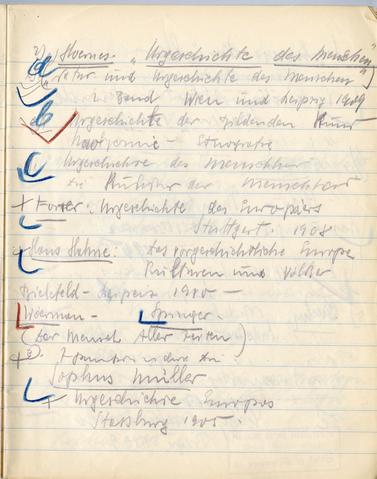 a) Hoernes. "Urgeschichte des Menschen"
Natur und Urgeschichte des Menschen")
2. Band, Wien und Leipzig 1909
b) Urgeschichte der bildenden Kunst
Urgeschichte des Menschen
Kultur der Menschheit
+ Forrer. Urgeschichte des Europäers
Stuttgart. 1908
+ Hans Hahne. Das vorgeschichtliche Europa
Kulturen und Völker
Bielefeld - Leipzig 1910 -
Woerman - Springer -
(Der Mensch aller Zeiten)
+
Sophus Müller
+ Urgeschichte Europas
Strassburg 1905.